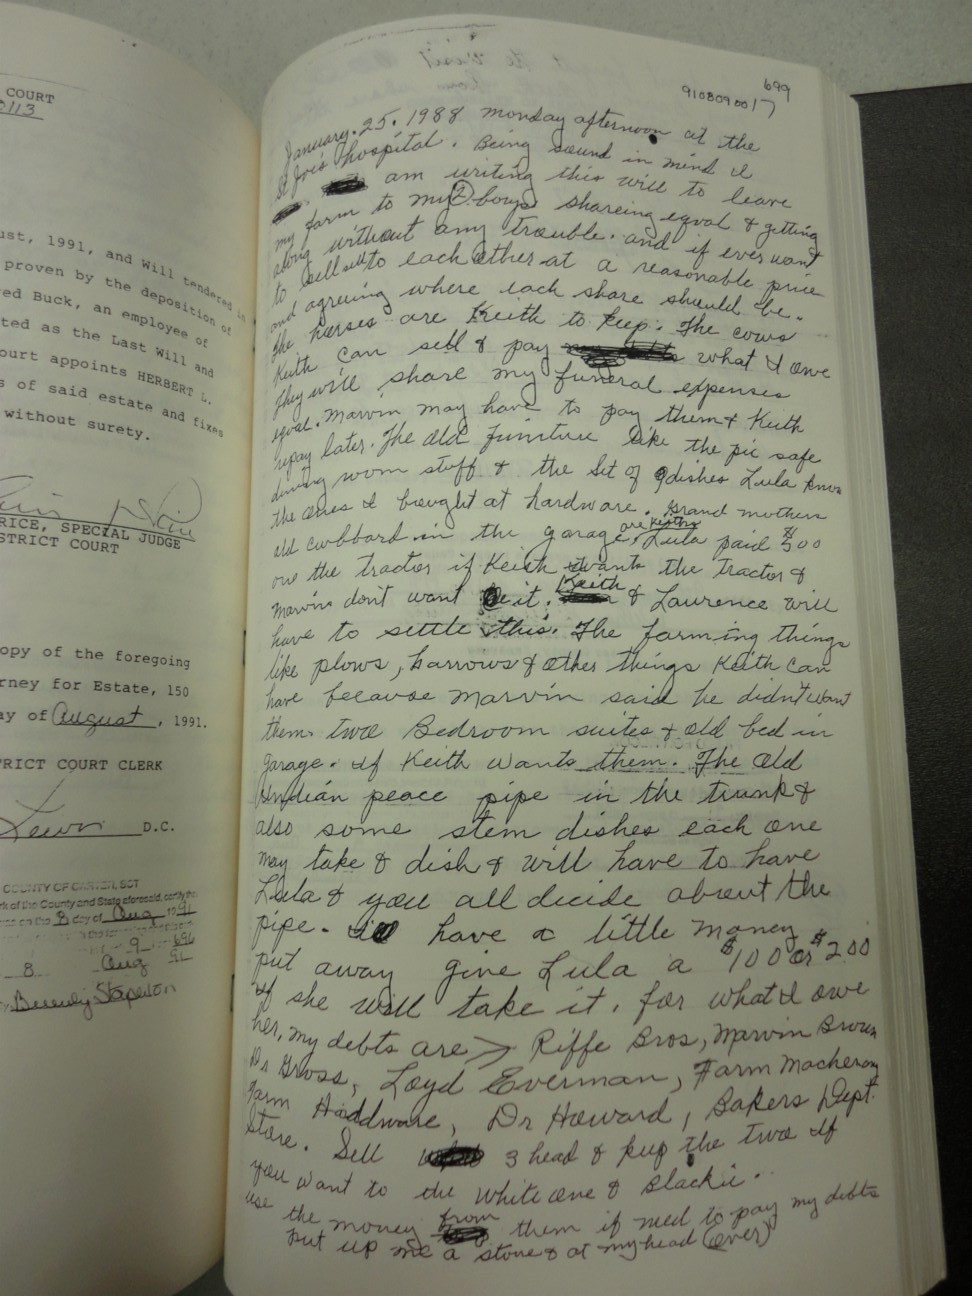 COURT
0113
ust, 1991, and Will tendered in
proven by the deposition of
red Buck, an employee of
ted as the Last Will and
ourt appoints HERBERT L.
s of said estate and fixes
without surety.
RICE, SPECIAL JUDGE
STRICT COURT
opy of the foregoing
rney for Estate, 150
ay of August, 1991.
TRICT COURT CLERK
D.C.
COUNTY OF CARTER, SCT
rk of the County and State aforesaid, certify the
8 day of Aug 1991
9 696
8 Aug 91
Beverly Stapleton
699
9108090017
January. 25. 1988 monday afternoon at the
St Joe's hospital. Being sound in mind I
am writing this will to leave
my farm to my 2 boys shareing eqval & getting
along without any trouble. and if ever want
to sell sell to each other at a reasonable price
and agreeing where each share should be.
The horses are Keith to keep. The cows
Keith can sell & pay what I owe
They will share my funeral expenses
eqval. Marvin may have to pay them & Keith
repay later. The old funiture like the pie safe
dinning room stuff & the set of dishes Lula know
the ones I bought at hardware. Grand mothers
old cubbard in the garage are Keiths. Lula paid $500
on the tractor if Keith wants the tractor &
Marvin don't want it. Keith & Laurence will
have to settle this. The farming things
like plows, harrows & other things Keith can
have because Marvin said he didn't want
them. two Bedroom suites & old bed in
garage. If Keith wants them. The old
Indian peace pipe in the trunk &
also some stem dishes each one
may take & dish & will have to have
Lula & you all decide about the
pipe. I have a little money
put away give Lula a $100 or $200
If she will take it. for what I owe
her, my debts are > Riffe Bros, Marvin Brown
Dr Gross, Loyd Everman, Farm Macheron
Farm Haddware, Dr Howard, Bakers Dept.
Store. Sell 3 head & keep the two if
you want to the white one & Blackie.
use the money from them if need to pay my debts
put up me a stone & at my head (over)